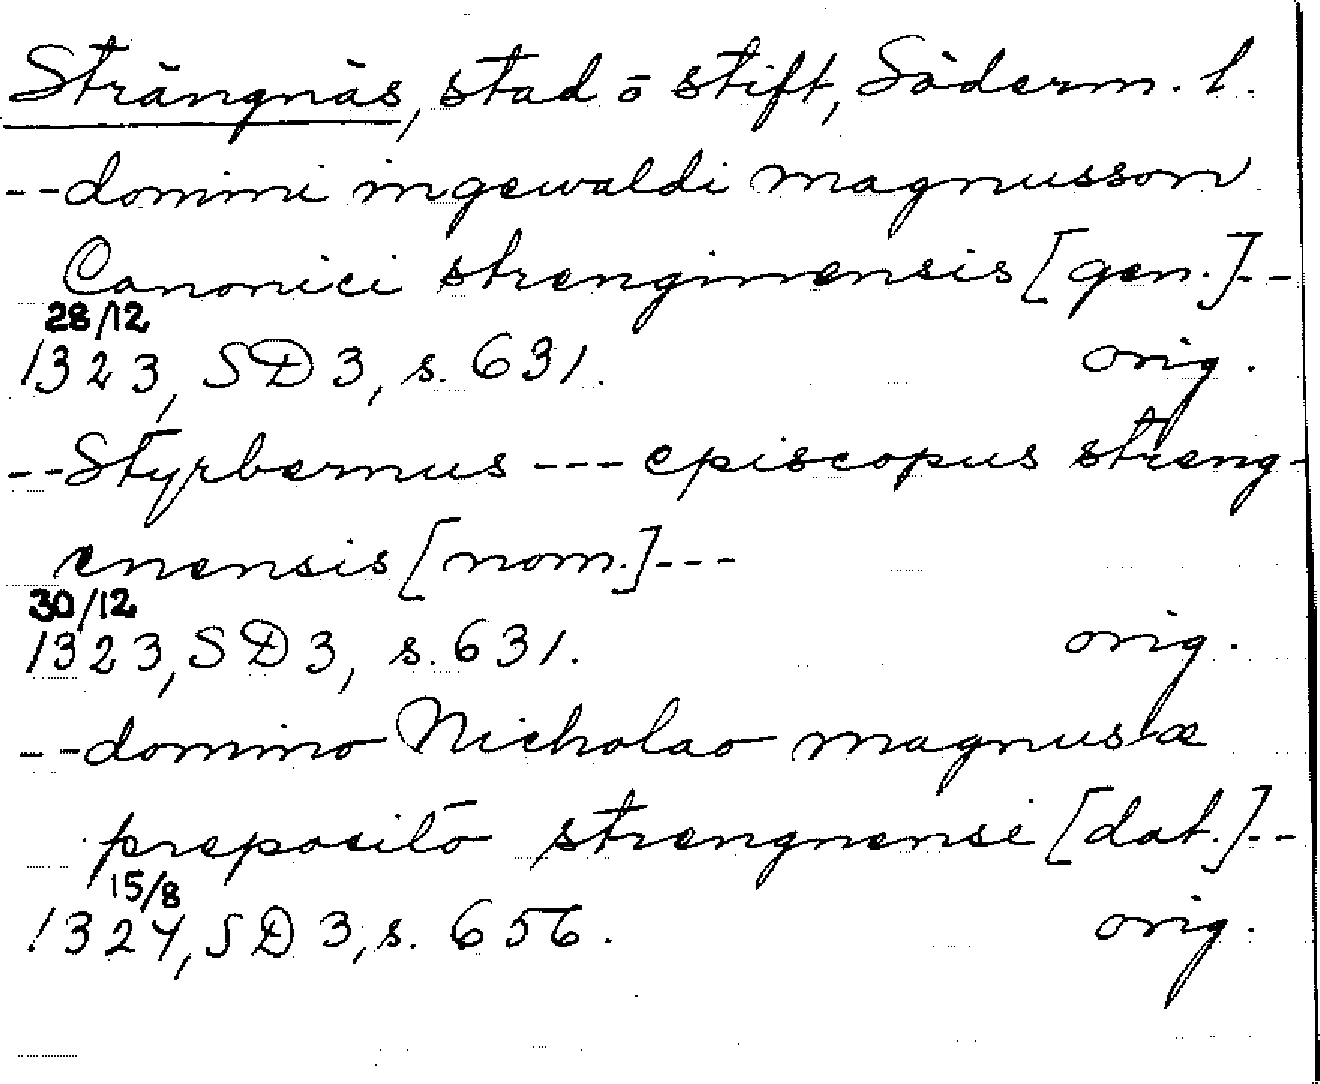 Strängnäs, stad o stift, Söderm. l.
--domini ingewaldi magnusson
Canonici strenginensis [gen.]--
28/12
1323, SD 3, s. 631. orig.
--Styrbernus --- episcopus streng-
enensis [nom.]---
30/12
1323, SD 3, s. 631. orig.
--domino Nicholao magnus
preposito strengnensi [dat.]--
15/8
1324, SD 3, s. 656. orig.